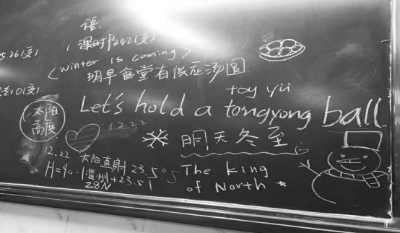 语:
课时P242(支)
(winter is coming)
明早食堂有供应汤圆
toy yii
Let's hold a tongyong ball
太阳
高度
12.22
明天冬至
12.22
太阳直射 23.5°S
H=90-|温州+23.5|
28N
The king
of North